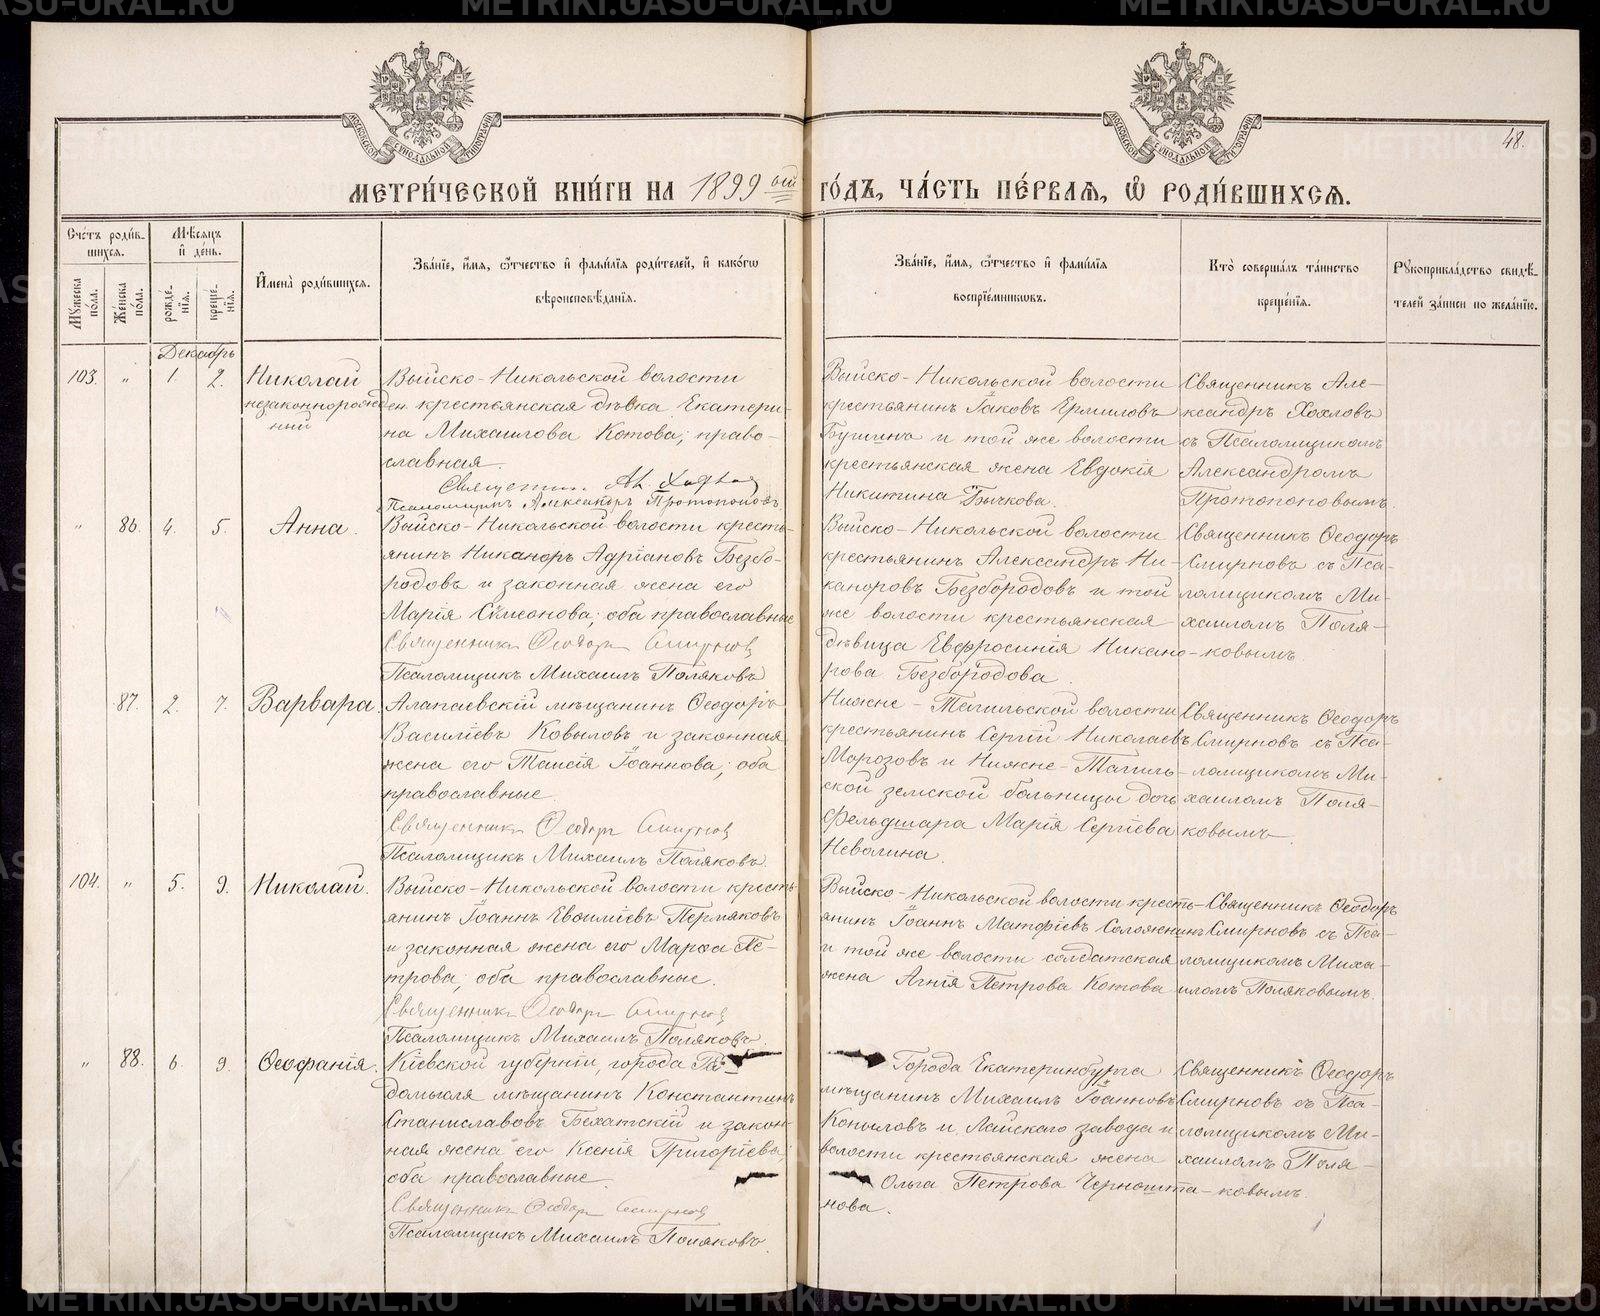 METRIKI.GASU-URAL.RU
МОСКОВСКОЙ СѴНОДАЛЬНОЙ ТИПОГРАФІИ
МОСКОВСКОЙ СѴНОДАЛЬНОЙ ТИПОГРАФІИ
48.
МЕТРИ́ЧЕСКОЙ КНИ́ГИ НА 1899 ый ГО́ДЪ, ЧА́СТЬ ПЕ́РВАѦ, Ѡ҆ РОДИ́ВШИХСѦ.
Сче́тъ роди́в-
шихсѧ.
Мꙋ́жеска по́ла.
Же́нска по́ла.
Мѣ́сѧцъ
и҆ де́нь.
рожде́-
нїѧ.
креще́-
нїѧ.
И҆мена̀ роди́вшихсѧ.
Зва́нїе, и҆́мѧ, ѻ҆́тчество и҆ фами́лїѧ роди́телей, и҆ како́гѡ
вѣроисповѣ́данїѧ.
Зва́нїе, и҆́мѧ, ѻ҆́тчество и҆ фами́лїѧ
воспрїе́мникѡвъ.
Кто̀ соверша́лъ та́инство
креще́нїѧ.
Рꙋкоприкла́дство свидѣ́-
телей за́писи по жела́нїю.
Декабрь
103. „ 1. 2. Николай
незаконнорожден-
ный
Выйско-Никольской волости
крестьянская дѣвка Екатери-
на Михаилова Котова; право-
славная.
Священник Ал. Хохлов
Псаломщикъ Александръ Протопоповъ
Выйско-Никольской волости
крестьянинъ Іаковъ Ермиловъ
и той же волости
крестьянская жена Евдокія
Никитина Бычкова.
Священникъ Але-
ксандръ Хохловъ
съ Псаломщикомъ
Александромъ
Протопоповымъ.
„ 86. 4. 5. Анна.
Выйско-Никольской волости кресть-
янинъ Никаноръ Адріановъ Безбо-
родовъ и законная жена его
Марія Сѵмеонова; оба православные
Священникъ Ѳеодоръ Смирнов
Псаломщикъ Михаилъ Поляковъ
Выйско-Никольской волости
крестьянинъ Александръ Ни-
каноровъ Безбородовъ и той
же волости крестьянская
дѣвица Евфросинія Никано-
рова Безбородова.
Священникъ Ѳеодоръ
Смирновъ съ Пса-
ломщикомъ Ми-
хаиломъ Поля-
ковымъ.
87. 2. 7. Варвара.
Алапаевскій мѣщанинъ Ѳеодоръ
Василіевъ Ковыловъ и законная
жена его Таисія Іоаннова; оба
православные
Священникъ Ѳеодоръ Смирнов
Псаломщикъ Михаилъ Поляковъ.
Нижне-Тагильской волости
крестьянинъ Сергій Николаевъ
Морозовъ и Нижне-Тагиль-
ской земской больницы дочь
фельдшара Марія Сергіева
Неволина.
Священникъ Ѳеодоръ
Смирновъ съ Пса-
ломщикомъ Ми-
хаиломъ Поля-
ковымъ
104. „ 5. 9. Николай.
Выйско-Никольской волости кресть-
янинъ Іоаннъ Пермяковъ
и законная жена его Марѳа Пе-
трова; оба православные.
Священникъ Ѳеодоръ Смирнов
Псаломщикъ Михаилъ Поляковъ.
Выйско-Никольской волости кресть-
янинъ Іоаннъ Матѳіевъ
и той же волости солдатская
жена Агнія Петрова Котова
Священникъ Ѳеодоръ
Смирновъ съ Пса-
ломщикомъ Миха-
иломъ Поляковымъ.
„ 88. 6. 9. Ѳеофанія.
Кіевской губерніи, города Ра-
домысля мѣщанинъ Константинъ
Станиславовъ Бехатскій и закон-
ная жена его Ксенія Григоріева;
оба православные.
Священникъ Ѳеодоръ Смирнов
Псаломщикъ Михаилъ Поляковъ.
Города Екатеринбурга
мѣщанинъ Михаилъ Іоанновъ
Копыловъ и Лайскаго завода и
волости крестьянская жена
Ольга Петрова Черношта-
нова.
Священникъ Ѳеодоръ
Смирновъ съ Пса-
ломщикомъ Ми-
хаиломъ Поля-
ковымъ.